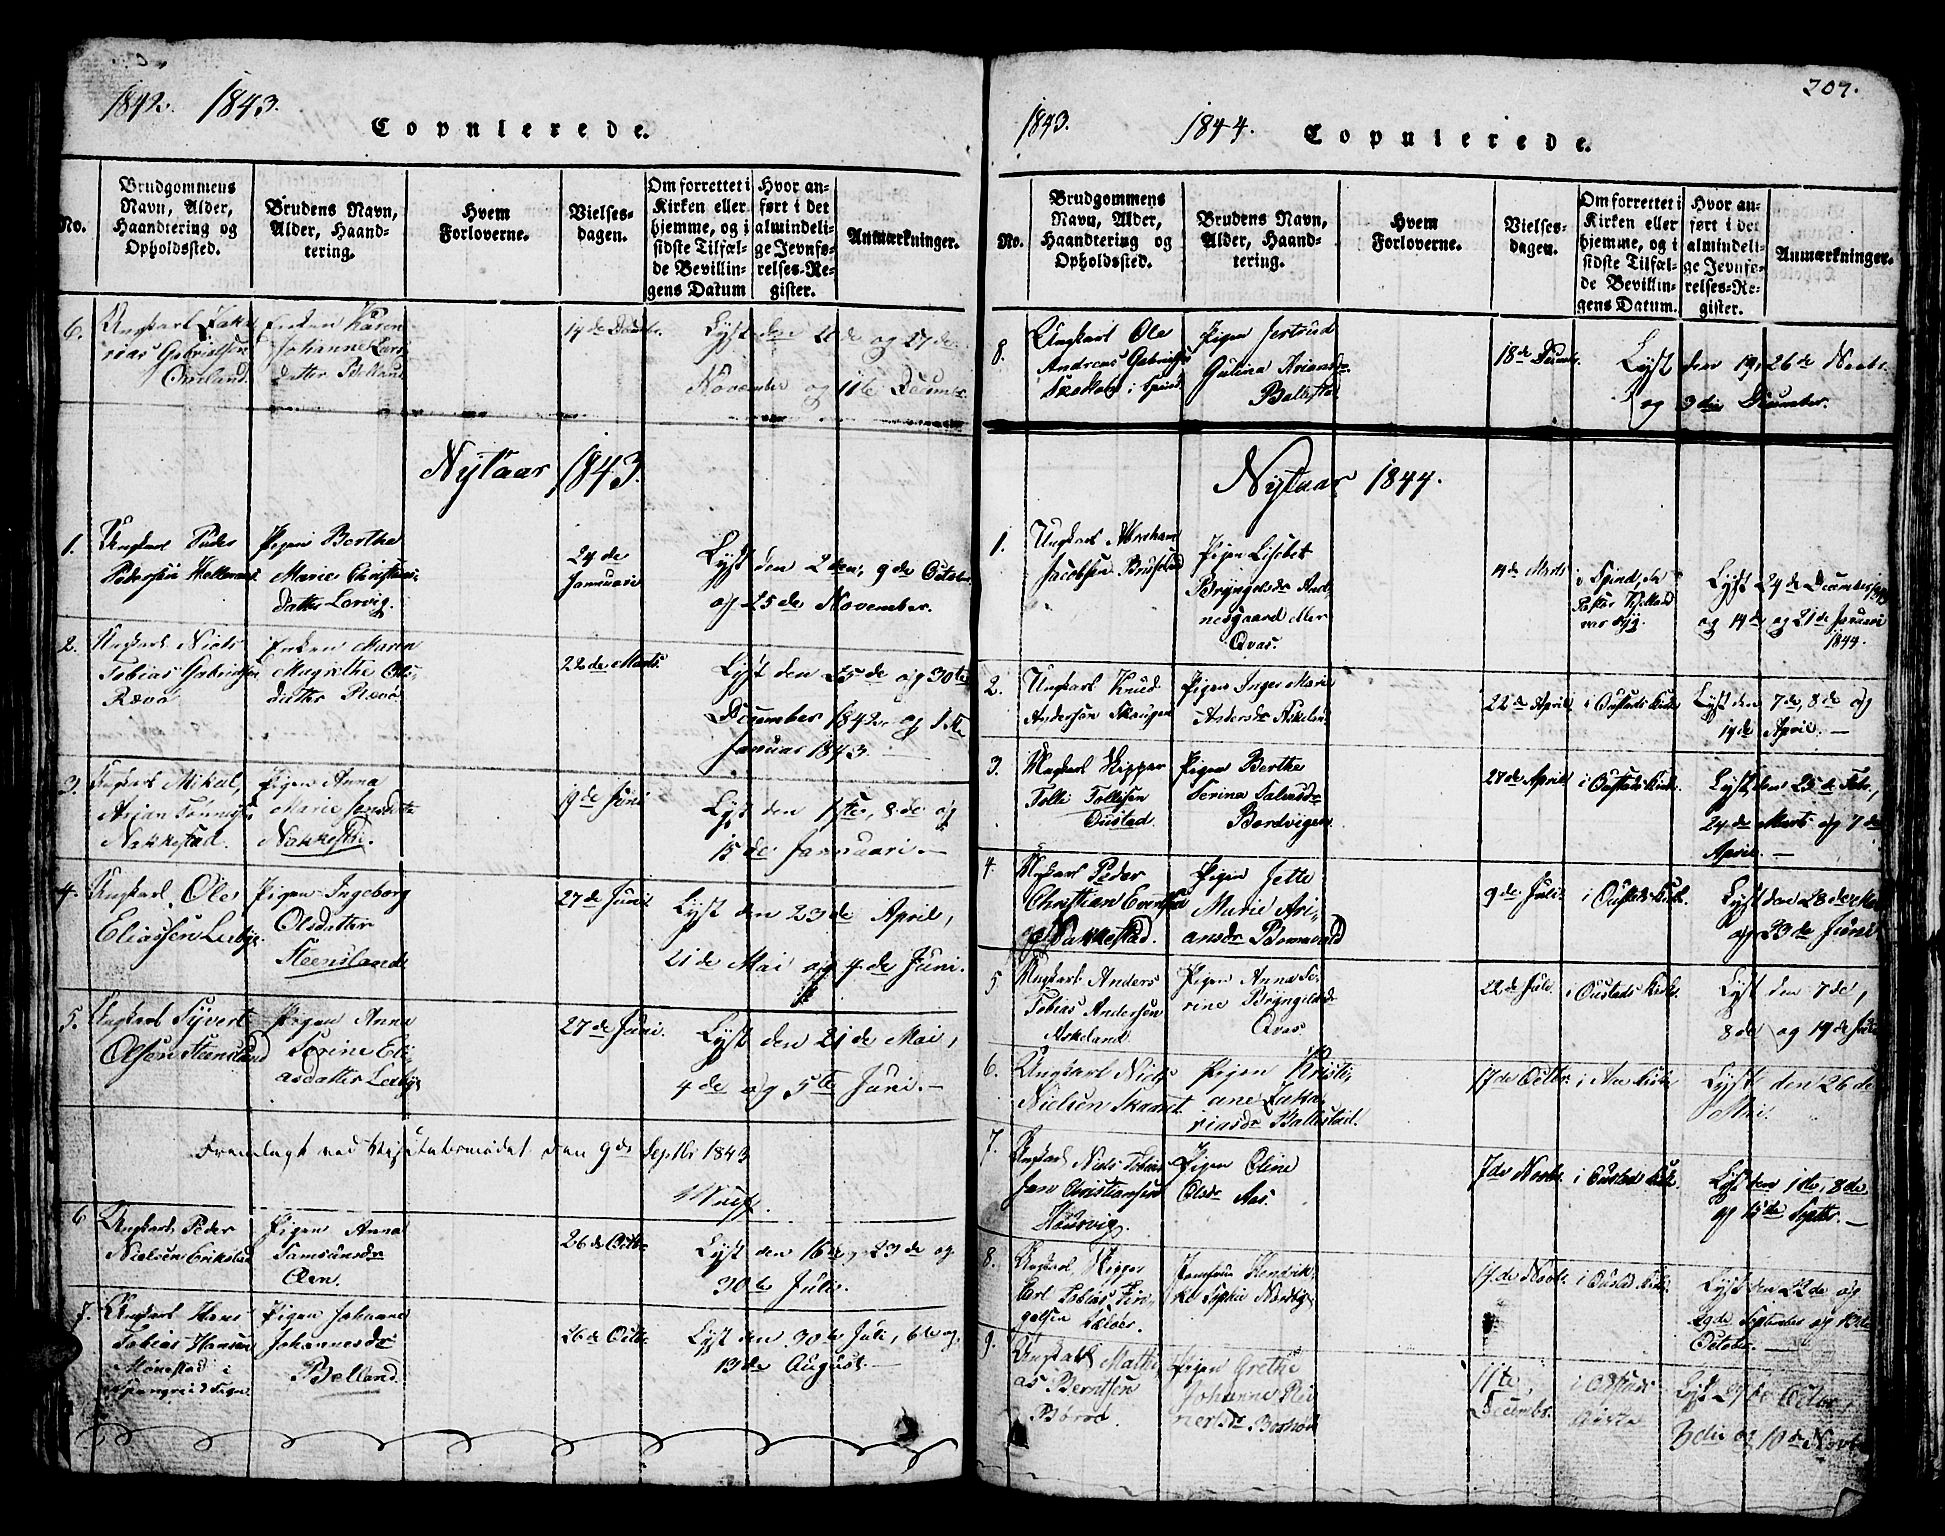 1842. 1843.
Copulerede.
No.
Brudgommens Navn, Alder, Haandtering og Opholdssted.
Brudens Navn, Alder, Haandtering.
Hvem Forloverne.
Vielsesdagen.
Om forrettet i Kirken eller hjemme, og i sidste Tilfælde Bevillingens Datum
Hvor anført i det almindelige Jevnførelses-Register.
Anmærkninger.
6.
Ungkarl
Gabrielsen
Enken Karen
Johanne Lars
datter Belland
14de
Lyst den
og 27de
November og 11te Decembr.
Nytaar 1843.
1.
Ungkarl Peder
Pedersen
Pigen Bertha
Marie Christians
datter Lervig.
24de
Januari
Lyst den 2den, 9de Octobr
og 25de November.
2.
Ungkarl Niels
Tobias Gabrielsen
Rævø
Enken Maren
Magrethe Ols
datter Rævø
22de Marts.
Lyst den 25de og 30te
December 1842 og 1ste
Januar 1843.
3.
Ungkarl Mikal
Arjan Tønnesen
Nakkestad.
Pigen Anna
Marie
Nakkestd.
9de Juni
Lyst den 1ste, 8de og
15de Januari.—
4.
Ungkarl Ole
Eliassen Lerbye.
Pigen Ingeborg
Olsdatter
Steensland
27de Juni
Lyst den 23de April,
21de Mai og 4de Juni.
5.
Ungkarl Syvert
Olsen Steensland
Pigen Anna
Serine Eli
asdatter Lerbye
27de Juni.
Lyst den 21de Mai,
4de og 5te Juni.—
Fremlagt ved Visitatsmødet den 9de Septbr 1843
6
Ungkarl Peder
Nielsen Erikstad
Pigen Anna
Samsonsdr
Øen.
26de Octbr
Lyst den 16de, 23de og
30te Juli.
7.
Ungkarl Hans
Tobias Hansen
Mønestad i
Pigen Johanne
Johannesdr
Belland.
26de Octbr
Lyst den 30te Juli, 6te og
13de August.
207.
1843. 1844.
Copulerede.
No.
Brudgommens Navn, Alder, Haandtering og Opholdssted.
Brudens Navn, Alder, Haandtering.
Hvem Forloverne.
Vielsesdagen.
Om forrettet i Kirken eller hjemme, og i sidste Tilfælde Bevillingens Datum.
Hvor anført i det almindelige Jevnførelses-Register.
Anmærkninger.
8.
Ungkarl Ole
Andreas Gabrielsen
i Spind
Pigen Jertrud
Gulina Ariansdr
Ballestad
18de Decembr.
Lyst den 19, 26de Novbr.
og 3die December.
Nytaar 1844.
1.
Ungkarl Abraham
Jacobsen Brufstad
Pigen Lisebet
Bryngelsdr
Qvas.
4de Marts
i Spind, da
Lyst 24de December 1843
og 14de, og 21de Januari
1844.
2.
Ungkarl Knud
Andersen Skaugen
Pigen Inger Marie
Andersdr Askeland
22de April
i Oustads Kirke
Lyst den 7de, 8de og
14de April.—
3.
Ungkarl Skipper
Tolli Tollisen
Oustad.
Pigen Berthe
Serina Salvesdr
Bordvigen
28de April
i Oustads Kirke.
Lyst den 25de Febr,
24de Marts og 7de
April.—
4
Ungkarl Peder
Christian Evensen
Nakkestad.
Pigen Jette
Marie Ari
ansdr
9de Juli.
i Oustads Kirke.
Lyst den 28de Mai
og 23de Juni
5
Ungkarl Anders
Tobias Andersen
Askeland
Pigen Anna Se
rine Bryngelsdr
Qvas
22de Juli.
i Oustads Kirke.
Lyst den 7de,
8de og 14de Juli
6.
Ungkarl Niels
Nielsen
Pigen Kristi
ane Zaka
riasdr Ballestad.
17de Octbr
i Aae Kirke
Lyst den 26de
Mai.
7.
Ungkarl Niels Tobias
Jan Christiansen
Hausvig.
Pigen Oline
Olsdr Aas.
7de Novbr.
i Oustad Kirke.
Lyst den 1de, 8de
og 15de Septbr.—
8.
Ungkarl Skipper
Carl Tobias
Jomfrue Hendrik
ke Sophie
17de Novbr
i Oustad Kirke.
Lyst den 22de og
29de September og 13de
October.—
9.
Ungkarl Mathi
as Berntsen
Børød
Pigen Grethe
Johanne Rei
nertsdr
11te
Decembr.
i Oustads
Lyst 27de Octbr,
3die og 10de Novbr